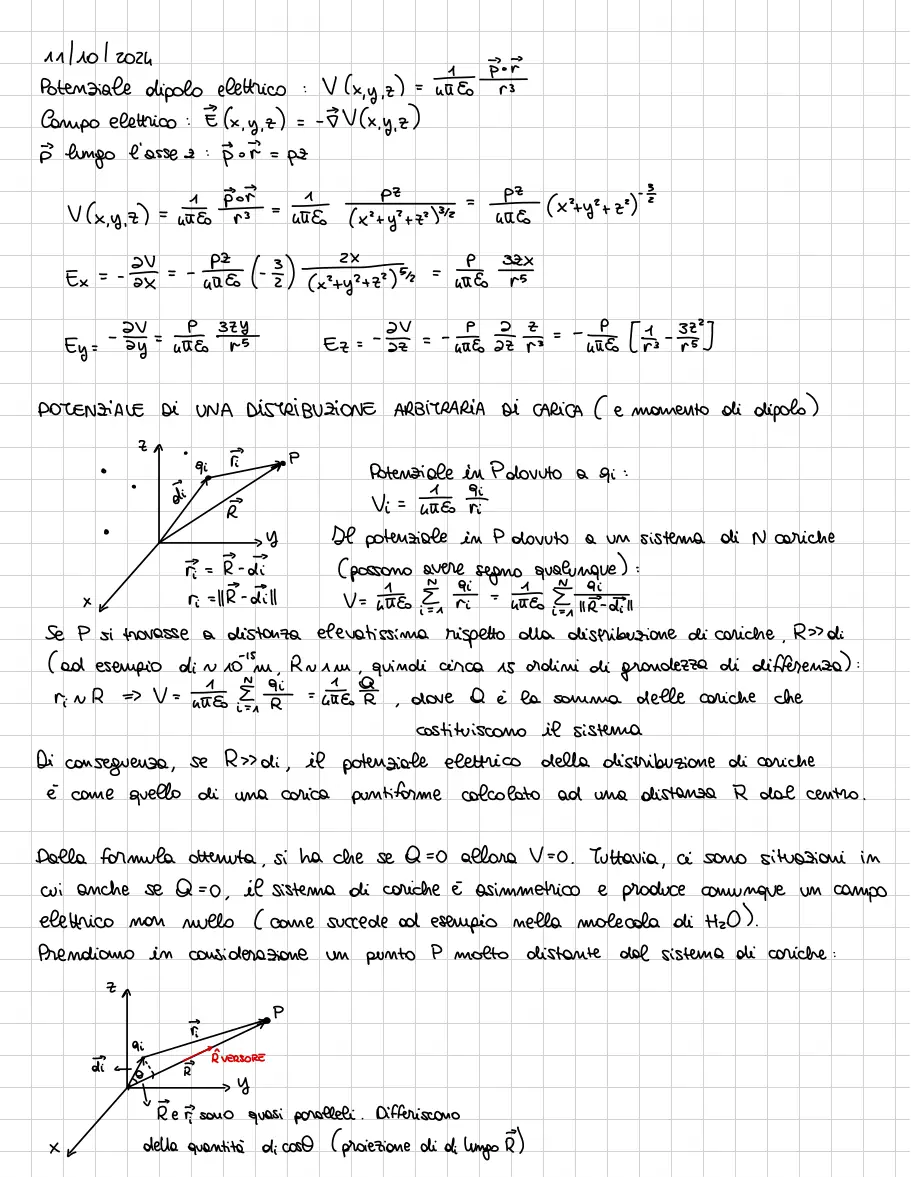 11/10/2024
Potenziale dipolo elettrico : V(x,y,z) = 1/4πε₀ p⃗∘r⃗/r³
Campo elettrico : E⃗(x,y,z) = -∇⃗V(x,y,z)
p⃗ lungo l'asse z : p⃗∘r⃗ = pz
V(x,y,z) = 1/4πε₀ p⃗∘r⃗/r³ = 1/4πε₀ pz/(x²+y²+z²)^3/2 = pz/4πε₀ (x²+y²+z²)^-3/2
Ex = -∂V/∂x = - pz/4πε₀ (-3/2) 2x/(x²+y²+z²)^5/2 = p/4πε₀ 3zx/r⁵
Ey = -∂V/∂y = p/4πε₀ 3zy/r⁵ Ez = -∂V/∂z = - p/4πε₀ ∂/∂z z/r³ = - p/4πε₀ [1/r³ - 3z²/r⁵]
POTENZIALE DI UNA DISTRIBUZIONE ARBITRARIA DI CARICA (e momento di dipolo)
z qi r⃗i P
d⃗i R⃗
y
x
r⃗i = R⃗-d⃗i
ri = ||R⃗-d⃗i||
Potenziale in P dovuto a qi :
Vi = 1/4πε₀ qi/ri
Il potenziale in P dovuto a un sistema di N cariche
(possono avere segno qualunque) :
V = 1/4πε₀ Σ_{i=1}^{N} qi/ri = 1/4πε₀ Σ_{i=1}^{N} qi/||R⃗-d⃗i||
Se P si trovasse a distanza elevatissima rispetto alla distribuzione di cariche, R>>di
(ad esempio di ~ 10⁻¹⁵m, R~1m, quindi circa 15 ordini di grandezza di differenza) :
ri ~ R => V = 1/4πε₀ Σ_{i=1}^{N} qi/R = 1/4πε₀ Q/R , dove Q è la somma delle cariche che
costituiscono il sistema
Di conseguenza, se R>>di, il potenziale elettrico della distribuzione di cariche
è come quello di una carica puntiforme calcolato ad una distanza R dal centro.
Dalla formula ottenuta, si ha che se Q=0 allora V=0. Tuttavia, ci sono situazioni in
cui anche se Q=0, il sistema di cariche è asimmetrico e produce comunque un campo
elettrico non nullo (come succede ad esempio nella molecola di H₂O).
Prendiamo in considerazione un punto P molto distante dal sistema di cariche :
z P
r⃗i
qi R̂ VERSORE
d⃗i θ R⃗
y
x
R⃗ e r⃗i sono quasi paralleli. Differiscono
della quantità di cosθ (proiezione di di lungo R⃗)